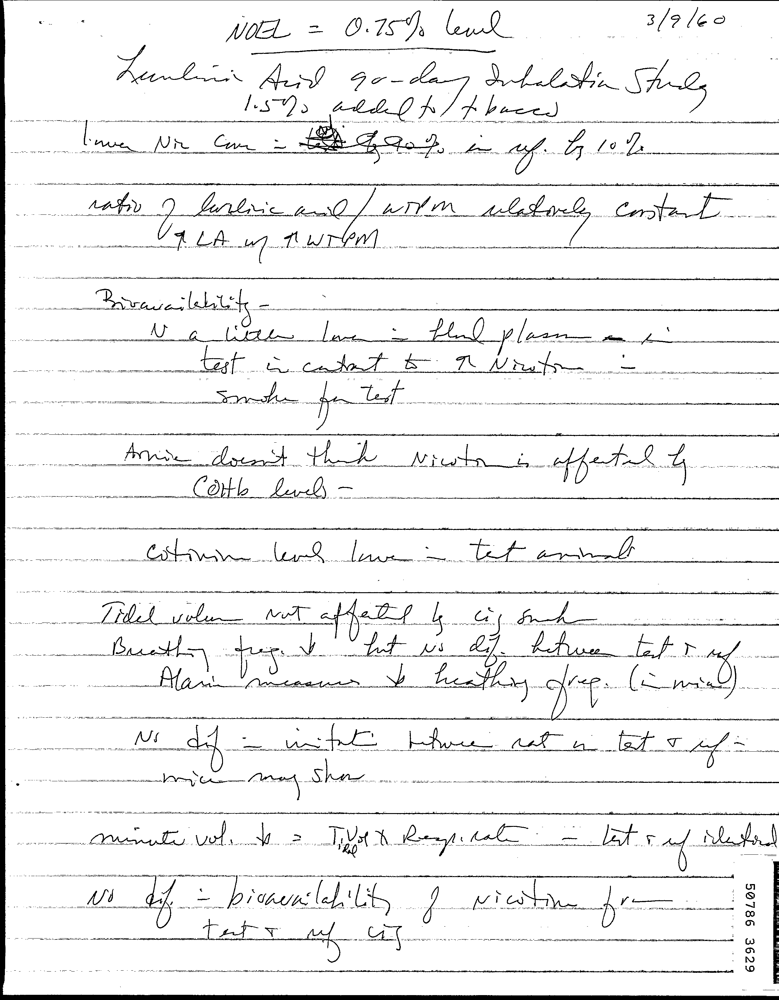 3/9/60
NOEL = 0.75% level
Levulinic Acid 90-day Inhalation Study
1.5% added to tobacco
lower Nic conc in ref. by 10%
ratio of levulinic acid / WTPM relatively constant
↑ LA w/ ↑ WTPM
Bioavailability -
N a little lower in blood plasma in
test in contrast to ↑ Nicotine in
smoke for test
Arnie doesn't think Nicotine is affected by
COHb levels -
cotinine level lower in test animals
Tidal volume not affected by cig smoke
Breathing freq. ↓ but no dif. between test & ref
Alarie measures ↓ breathing freq. (in mice)
No dif in irritation between rat in test & ref -
mice may show
minute vol. ↓ = Tidal Vol X Resp. rate - test & ref identical
No dif in bioavailability of nicotine from
test & ref cig
50786 3629